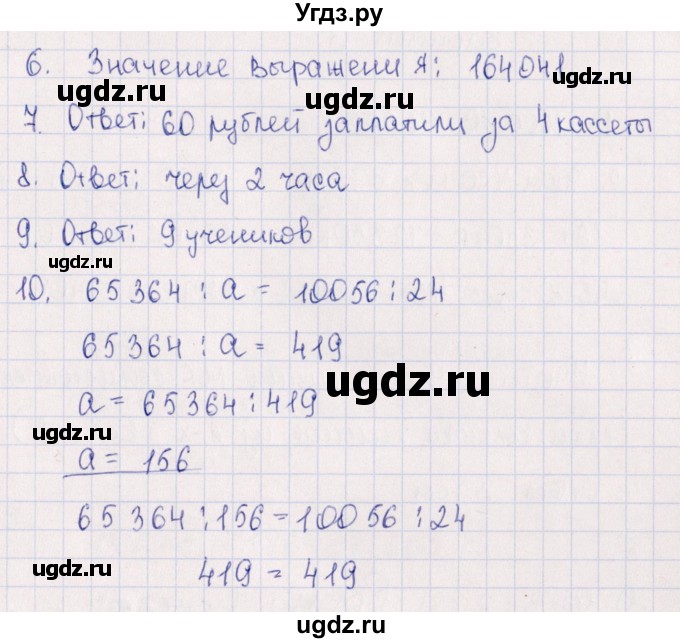 Угдз.ру
6. Значение выражения: 164041
ugdz.ru ugdz.ru
7. Ответ: 60 рублей заплатили за 4 кассеты
8. Ответ: через 2 часа
9. Ответ: 9 учеников
ugdz.ru
10. 65364 : а = 10056 : 24
65364 : а = 419
ugdz.ru
а = 65364 : 419
ugdz.ru
а = 156
65364 : 156 = 10056 : 24
ugdz.ru
419 = 419
ugdz.ru